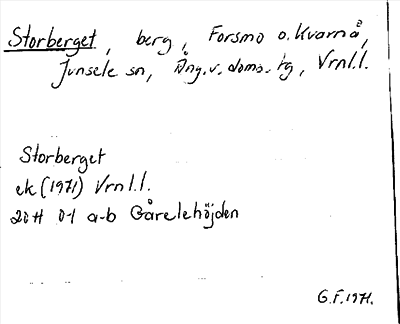 Storberget, berg, Forsmo o. Kvarnå,
Junsele sn, Ång. v. doms. tg, Vrnl.l.
Storberget
ek (1971) Vrnl.l.
20 H 01 a-b Gårelehöjden
G.F. 1971.